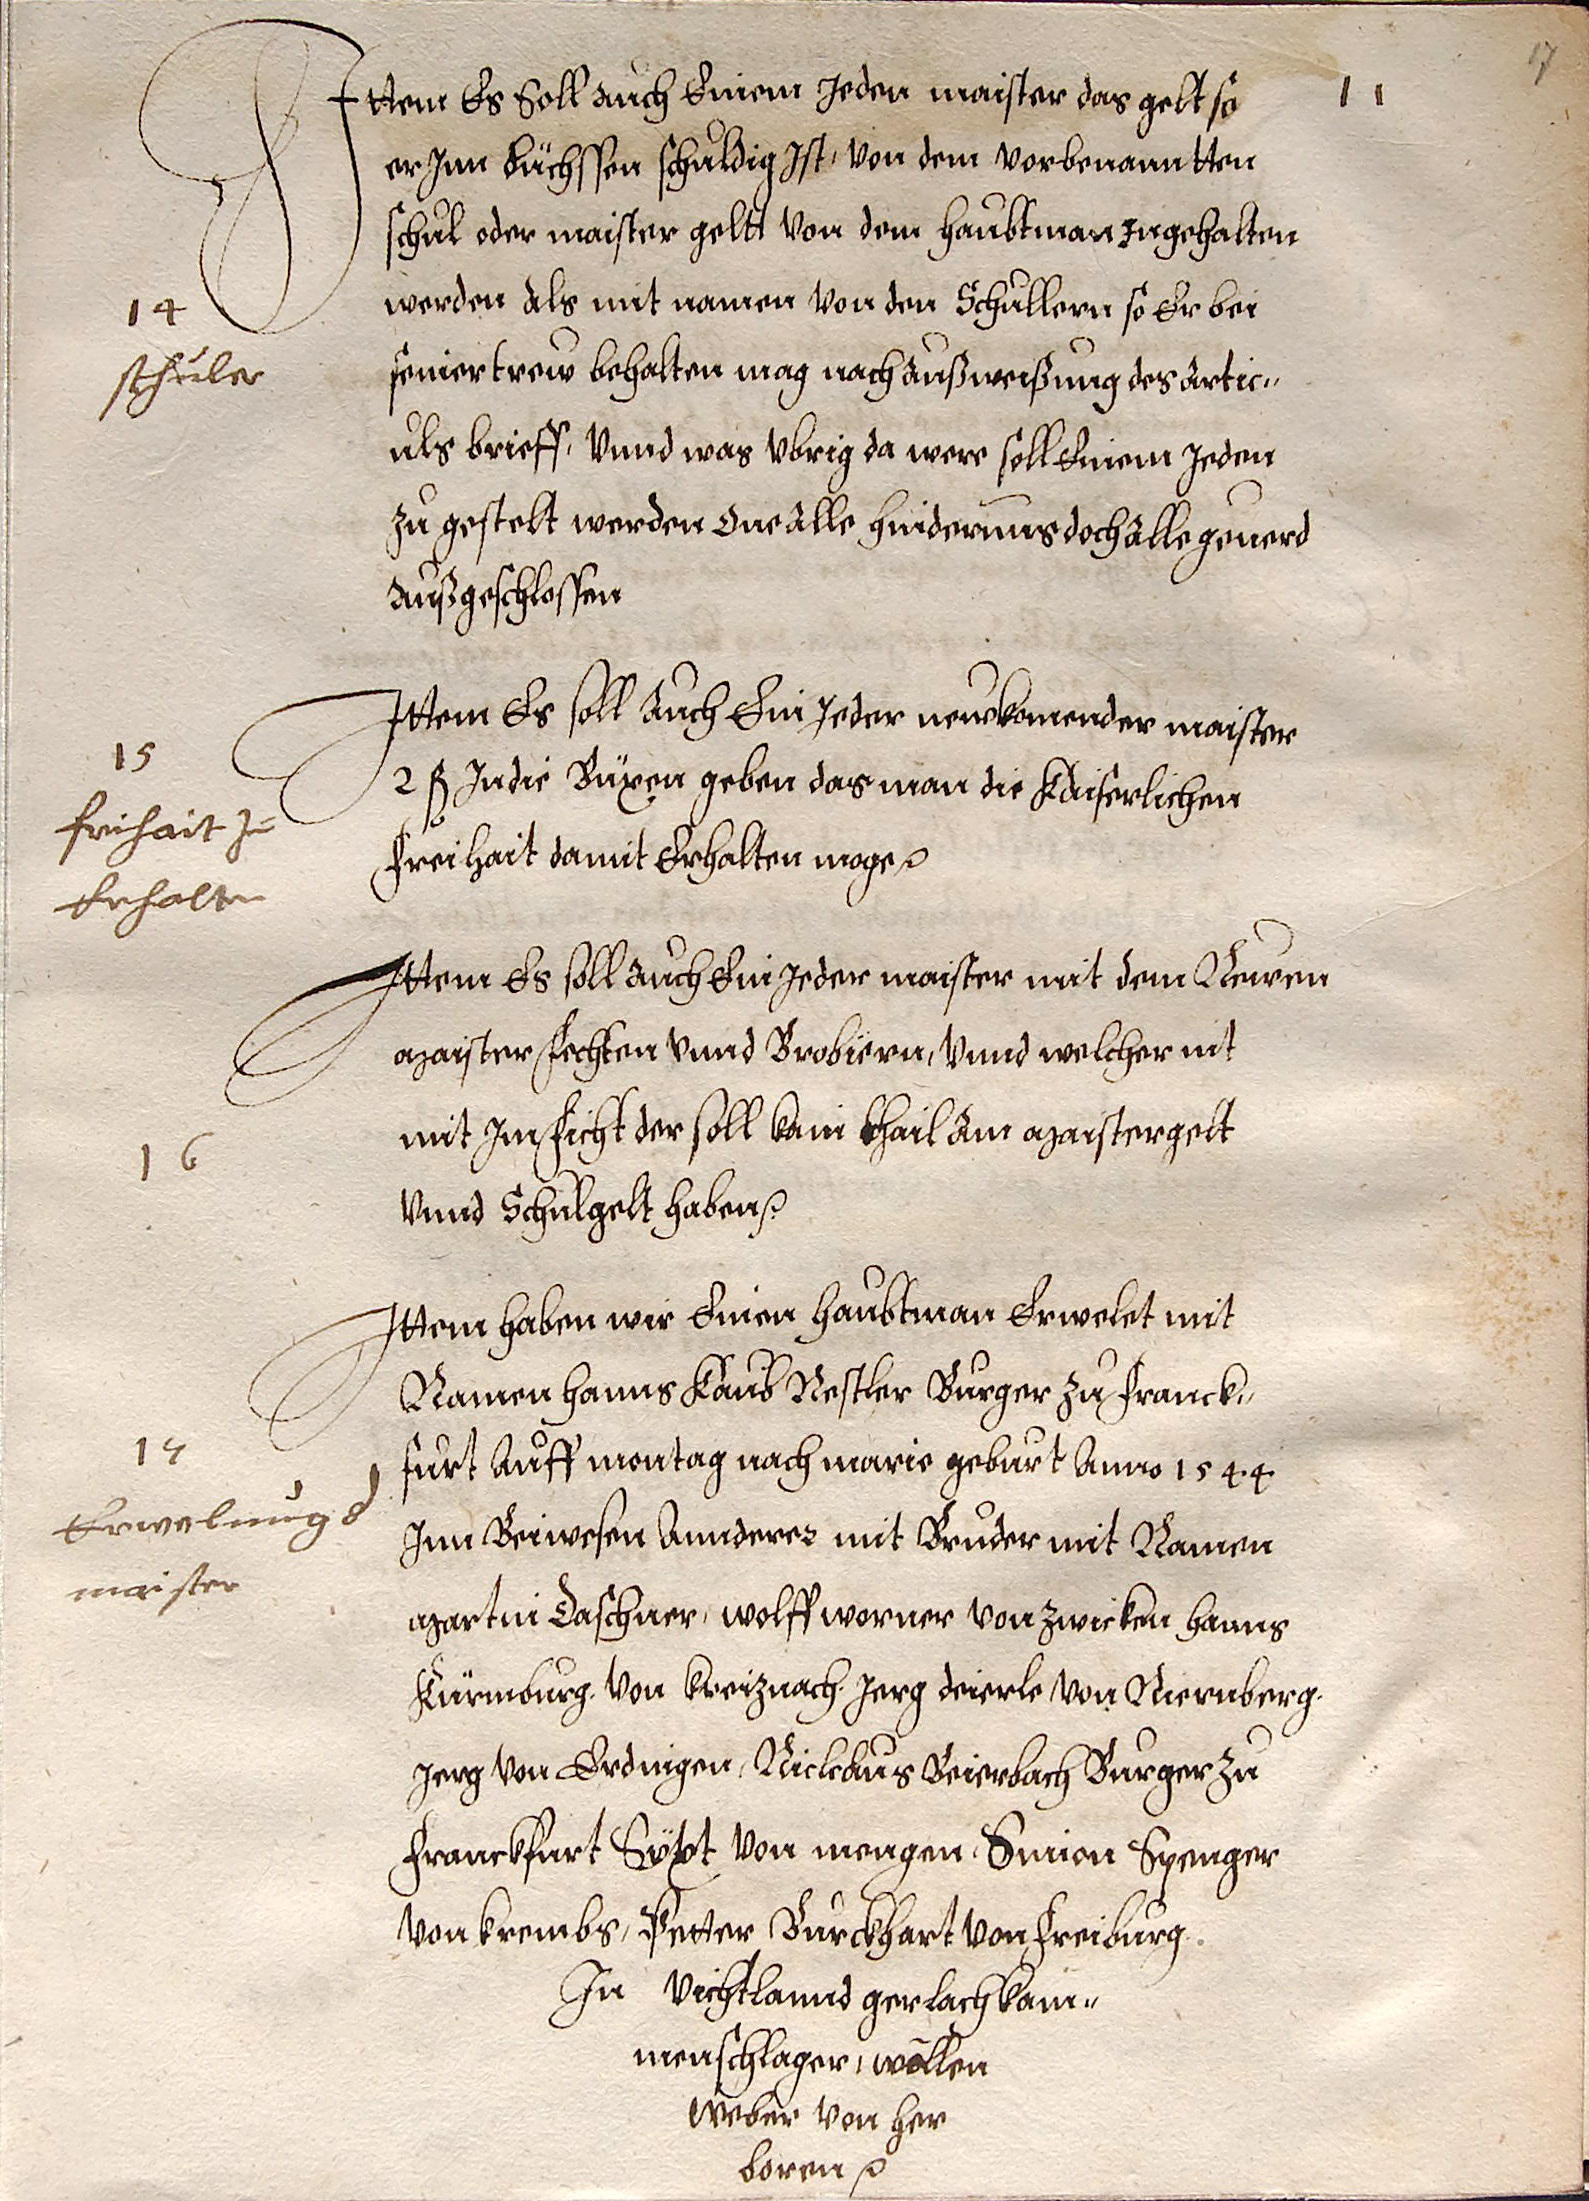 17
11
Ittem Es Soll Auch Einem Jeden maister das gelt so
er Jnn büchssen schuldig Jst, von dem vorbenanntten
schul oder maister geltt von dem haubtman Jngehalten
werden als mit namen von den Schullern so Er bei
seiner trew behalten mag nach Außweißung des Artic„
uls brieff, Vnnd was vbrig da were soll Einem Jeden
zu gestelt werden One Alle hindernus doch Alle geuerd
Außgeschlossen
14
schuler
Ittem Es soll Auch Ein Jeder neu komender maister
2 ß In die Büxen geben das man die Kaiserlichen
Freihait damit Erhalten moge
15
freihait zu
Erhalten
Ittem Es soll Auch Ein Jeder maister mit dem Newen
Maister fechten vnnd Brobiern, Vnnd welcher nit
mit Jm ficht der soll kain thail Am Maistergelt
Vnnd Schulgelt haben
16
Ittem haben wir Einen haubtman Erwelet mit
Namen hanns Knub Nestler Burger zu Franck„
furt Auff montag nach marie geburt Anno 1544
Jnn Beiwesen Annderer mit Bruder mit Namen
Martin Daschner, wolff worner von zwicken hanns
Kürnburg. von kreiznach. Jerg deierle von Niernberg.
Jerg von Erdingen, Nicklaus Beierbach Burger zu
Franckfurt Sÿxt von mengen, Simon Spenger
von krembs, Petter Burckhart von Freiburg.
In Vichtlannd gerlach kam„
menschlager, wollen
weber von her
boren
17
Erwelnung d
maister